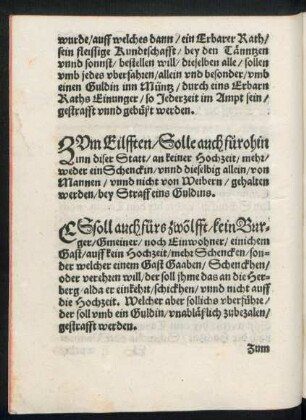 wurde / auff welches dann / ein Erbarer Rath /
sein fleissige Kundtschafft / bey den Tänntzen
vnnd sonnst / bestellen will / dieselben alle / sollen
vmb jedes vberfahren / allein vnd besonder / vmb
einen Guldin inn Müntz / durch eins Erbarn
Raths Einunger / so Jederzeit im Ampt sein /
gestrafft vnnd gebüßt werden.
ZVm Eilfften / Solle auch fürohin
inn diser Statt / an keiner Hochzeit / mehr /
weder ein Schenckin / vnnd dieselbig allein / von
Mannen / vnnd nicht von Weibern / gehalten
werden / bey Straff eins Guldins.
ES soll auch fürs zwölfft / kein Bur-
ger / Gmeiner / noch Einwohner / einichem
Gast / auff kein Hochzeit / mehr Schencken / son-
der welcher einem Gast Gaaben / Schenckhen /
oder verehren will / der soll ihme das an die Her-
berg / alda er einkehrt / schickhen / vnnd nicht auff
die Hochzeit. Welcher aber sollichs vberführe /
der soll vmb ein Guldin / vnabläßlich zubezalen /
gestrafft werden.
Zum